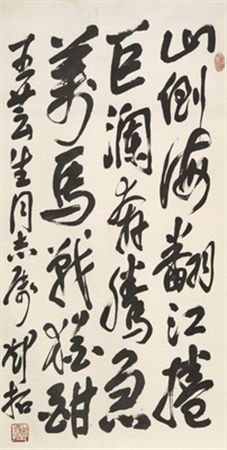 山倒海翻江捲
巨瀾奔騰急
萬馬戰猶酣
王芸生同志屬